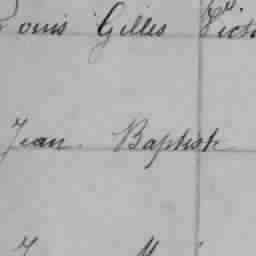 Louis Gilles Vict
Jean Baptiste